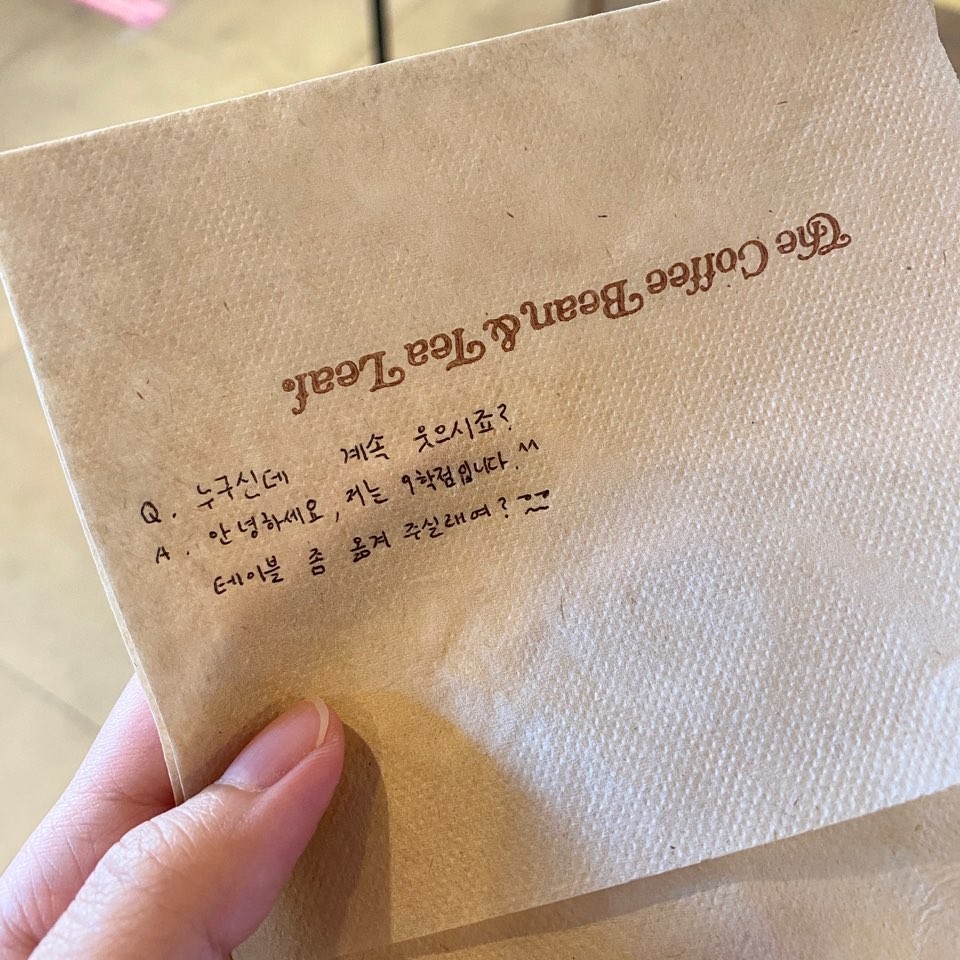 The Coffee Bean & Tea Leaf®
Q. 누구신데 계속 웃으시죠?
A. 안녕하세요, 저는 9학점입니다.^^
테이블 좀 옮겨 주실래여?